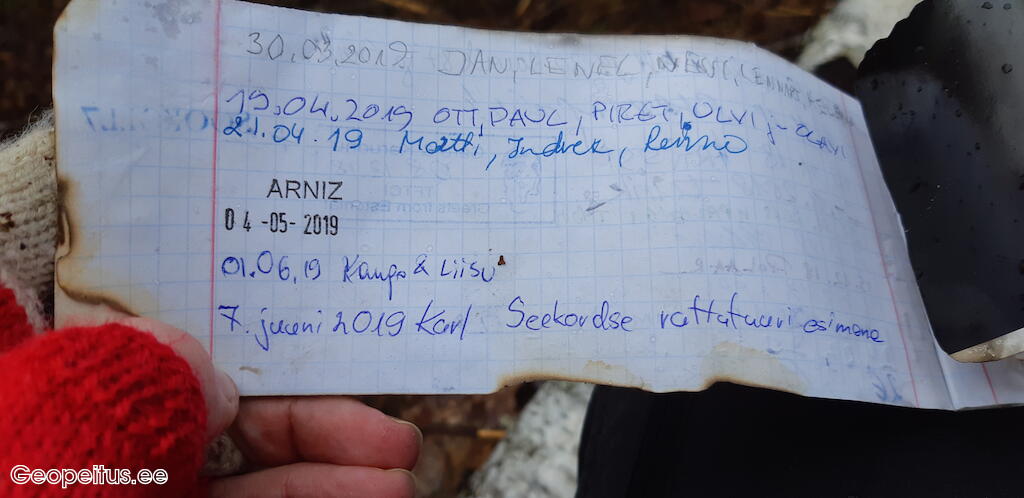 30.03.2019 JAN, LENEL,
19.04.2019 OTT, PAUL, PIRET, ULVI
21.04.19 Matti, Indrek, Reimo
ARNIZ
04-05-2019
01.06.19 Kaupo & Liisu
7. juuni 2019 Karl Seekordse rattatuuri esimene
Geopeitus.ee